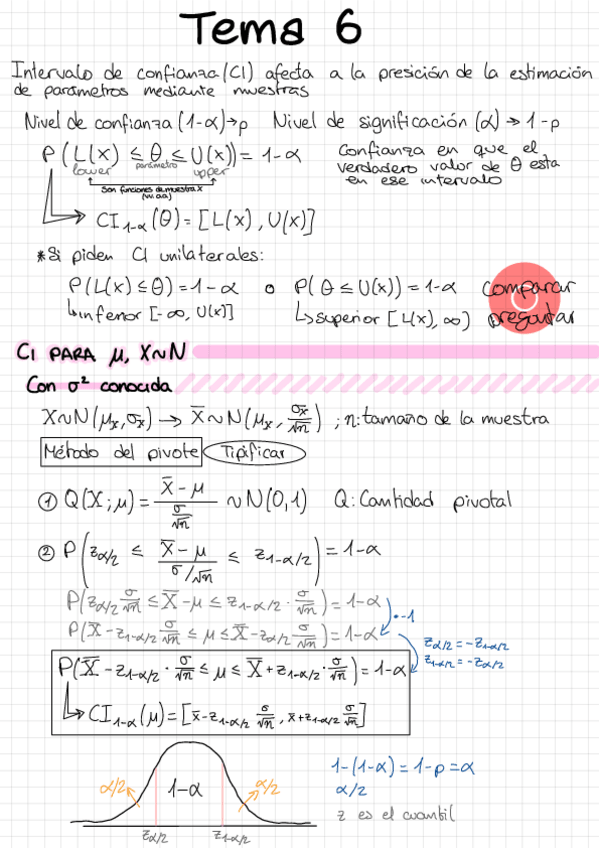 Tema 6
Intervalo de confianza (CI) afecta a la presición de la estimación
de parámetros mediante muestras
Nivel de confianza (1-α)→p Nivel de significación (α) → 1-p
P(L(x) ≤ θ ≤ U(x)) = 1-α confianza en que el
lower parámetro upper verdadero valor de θ esta
en ese intervalo
son funciones de muestra X
(vv.aa)
CI₁₋α(θ) = [L(x), U(x)]
*Si piden CI unilaterales:
P(L(x) ≤ θ) = 1-α o P(θ ≤ U(x)) = 1-α comparar
↳inferior [-∞, U(x)] ↳superior [L(x), ∞) preguntar
CI PARA μ, X~N
Con σ² conocida
X~N(μₓ, σₓ) → X̄~N(μₓ, σₓ/√n) ; n: tamaño de la muestra
Método del pivote Tipificar
① Q(X;μ) = (X̄-μ)/(σ/√n) ~ N(0,1) Q: Cantidad pivotal
② P(z_α/2 ≤ (X̄-μ)/(σ/√n) ≤ z_1-α/2) = 1-α
P(z_α/2 σ/√n ≤ X̄-μ ≤ z_1-α/2 · σ/√n) = 1-α
·-1
P(X̄-z_1-α/2 σ/√n ≤ μ ≤ X̄-z_α/2 σ/√n) = 1-α
z_α/2 = -z_1-α/2
z_1-α/2 = -z_α/2
P(X̄-z_1-α/2 · σ/√n ≤ μ ≤ X̄+z_1-α/2 · σ/√n) = 1-α
↳ CI₁₋α(μ) = [x̄-z_1-α/2 σ/√n, x̄+z_1-α/2 σ/√n]
1-(1-α) = 1-p = α
α/2 1-α α/2 α/2
z es el cuantil
z_α/2 z_1-α/2